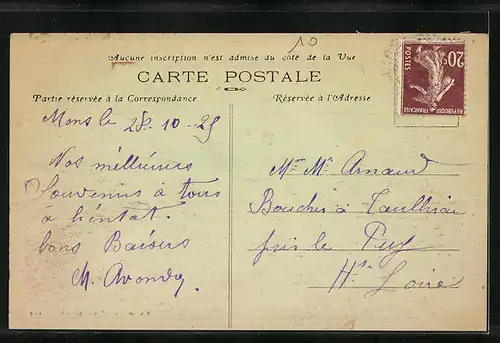 10
Aucune inscription n'est admise du côté de la Vue
CARTE POSTALE
Partie réservée à la Correspondance
Réservée à l'Adresse
20c
POSTES
RÉPUBLIQUE FRANÇAISE
Mons le 28-10-25
Nos méllieures
Souvenirs à tous
a bientot.
bons Baisers
M.
Mme Mr Arnaud
Boucher à Taulhac
près le Puy
Hte Loire